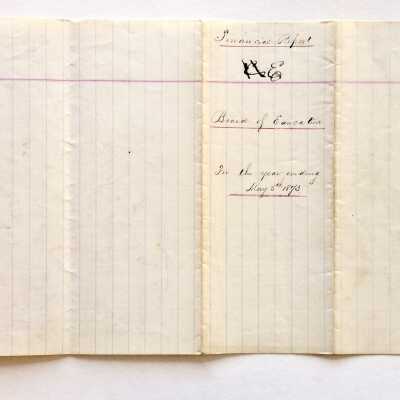 Financial Report
E
Board of Education
For the year ending
May 5th 1873